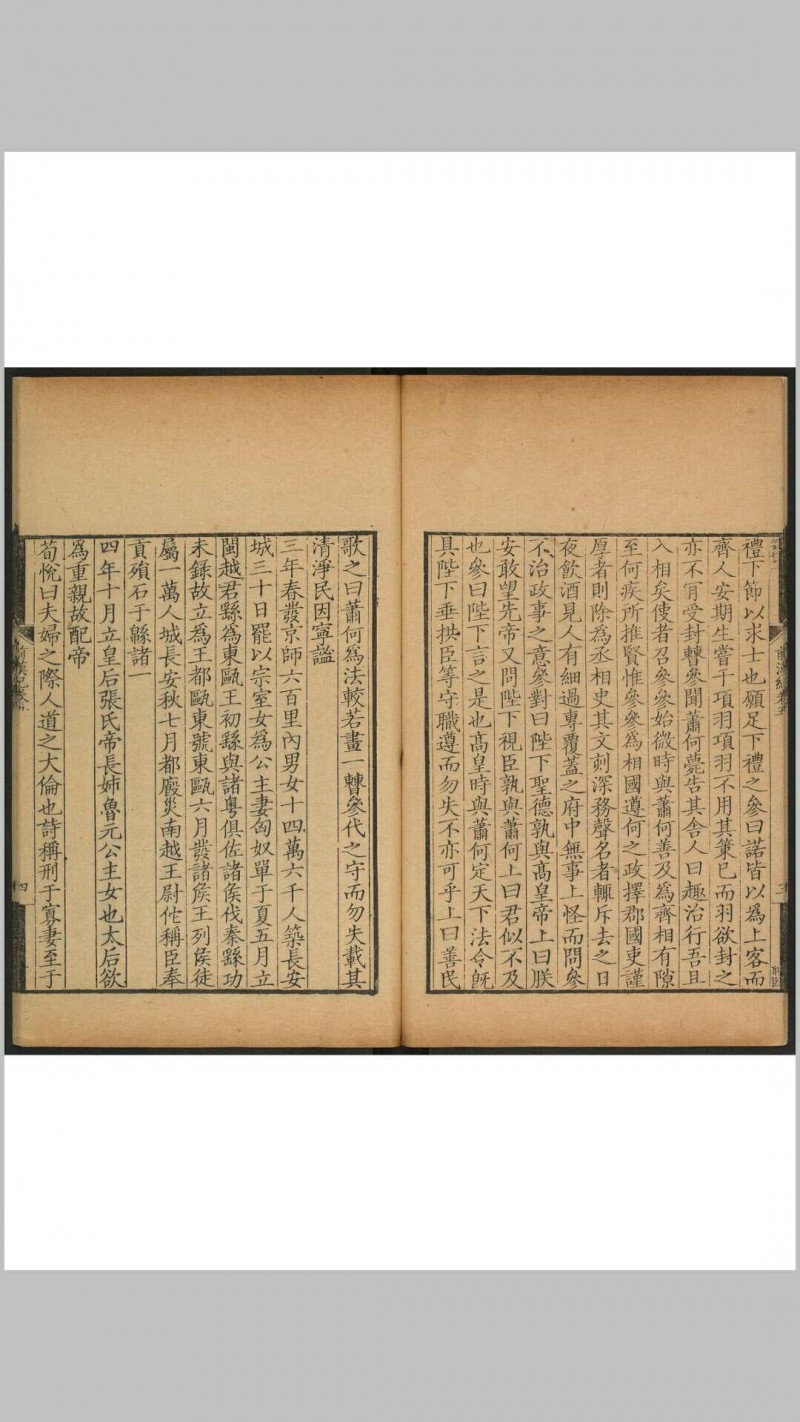 禮下節以求士也願足下禮之參曰諾皆以爲上客而
齊人安期生嘗干項羽項羽不用其策已而羽欲封之
亦不肎受封曹參聞蕭何薨告其舍人曰趣治行吾且
入相矣使者召參參始微時與蕭何善及爲齊相有隙
至何疾所推賢惟參參爲相國遵何之政擇郡國吏謹
厚者則除爲丞相史其文刻深務聲名者輒斥去之日
夜飲酒見人有細過專覆蓋之府中無事上怪而問參
不治政事之意參對曰陛下聖德孰與髙皇帝上曰朕
安敢望先帝又問陛下視臣孰與蕭何上曰君似不及
也參曰陛下言之是也髙皇時與蕭何定天下法令旣
具陛下垂拱臣等守職遵而勿失不亦可乎上曰善民
歌之曰蕭何爲法較若畫一曹參代之守而勿失載其
清淨民因寧謐
三年春發京師六百里內男女十四萬六千人築長安
城三十日罷以宗室女爲公主妻匈奴單于夏五月立
閩越君繇爲東甌王初繇與諸粤俱佐諸侯伐秦繇功
未録故立爲王都甌東號東甌六月發諸侯王列侯徒
屬一萬人城長安秋七月都廄災南越王尉佗稱臣奉
貢殞石于緜諸一
四年十月立皇后張氏帝長姉魯元公主女也太后欲
爲重親故配帝
荀恱曰夫婦之際人道之大倫也詩稱刑于寡妻至于